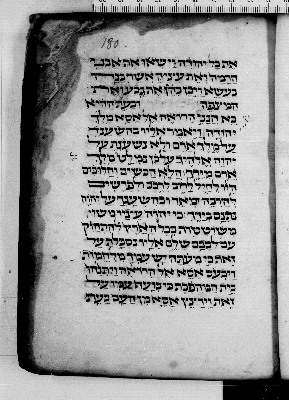 180
את כל יהודה וישאו את אבני
הרמה ואת עציה אשר בנה
בעשא ויבן בהן את גבע ואת
המצפה ובעת ההיא
בא חנני הראה אל אסא מלך
יהודה ויאמר אליו בהשענך
על מלך ארם ולא נשענת על
יהוה אלהיך על כן נמלט חיל מלך
ארם מידך הלא הכושים והלובים
היו לחיל לרב לרכב ולפרשים
להרבה מאד ובהשענך על יהוה
נתנם בידך כי יהוה עיניו
משטטות בכל הארץ להתחזק
עם לבבם שלם אליו נסכלת על
זאת כי מעתה יש עמך מלחמות
ויכעס אסא אל הראה ויתנהו
בית המהפכת כי בזעף עמו על
זאת וירצץ אסא מן העם בעת